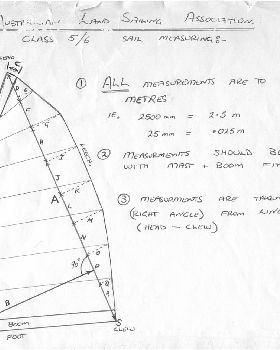 AUSTRALIAN LAND SAILING ASSOCIATION
CLASS 5/6 SAIL MEASURING:-
HEAD
① ALL MEASUREMENTS ARE TO
METRES
IE. 2500 mm = 2.5 m
25 mm = .025 m
② MEASURMENTS SHOULD BE
WITH MAST + BOOM FIT
③ MEASURMENTS ARE TAKEN
(RIGHT ANGLE) FROM LINE
(HEAD - CLEW)
LEECH
C
D
E
F
G
H
I
J
K
A
L
M
N
O
90°
P
Q
B
R
S
CLEW
BOOM
FOOT